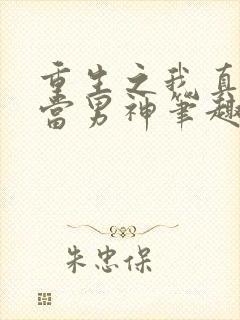 重生之我真
当男神笔趣
朱忠保